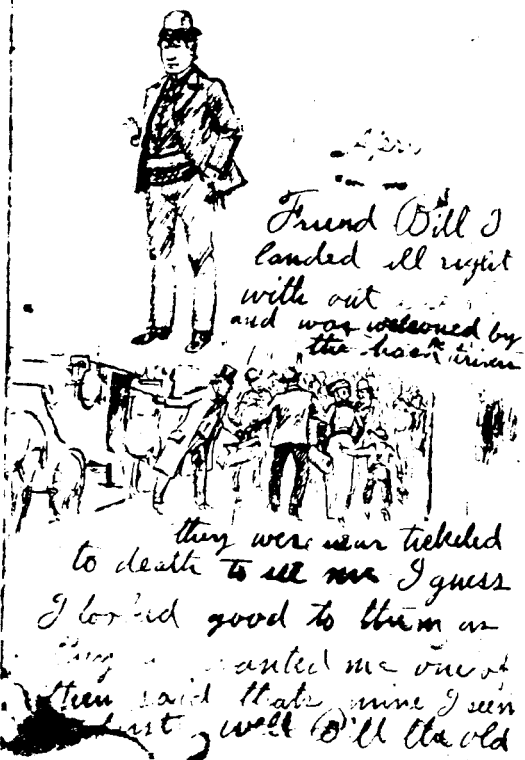 Friend Bill I
landed ill right
with out
and was welcomed by
the hack drivers
they were near tickeled
to death to see me I guess
I looked good to them as
they wanted me one of
then said thats mine I seen
first well Bill the old